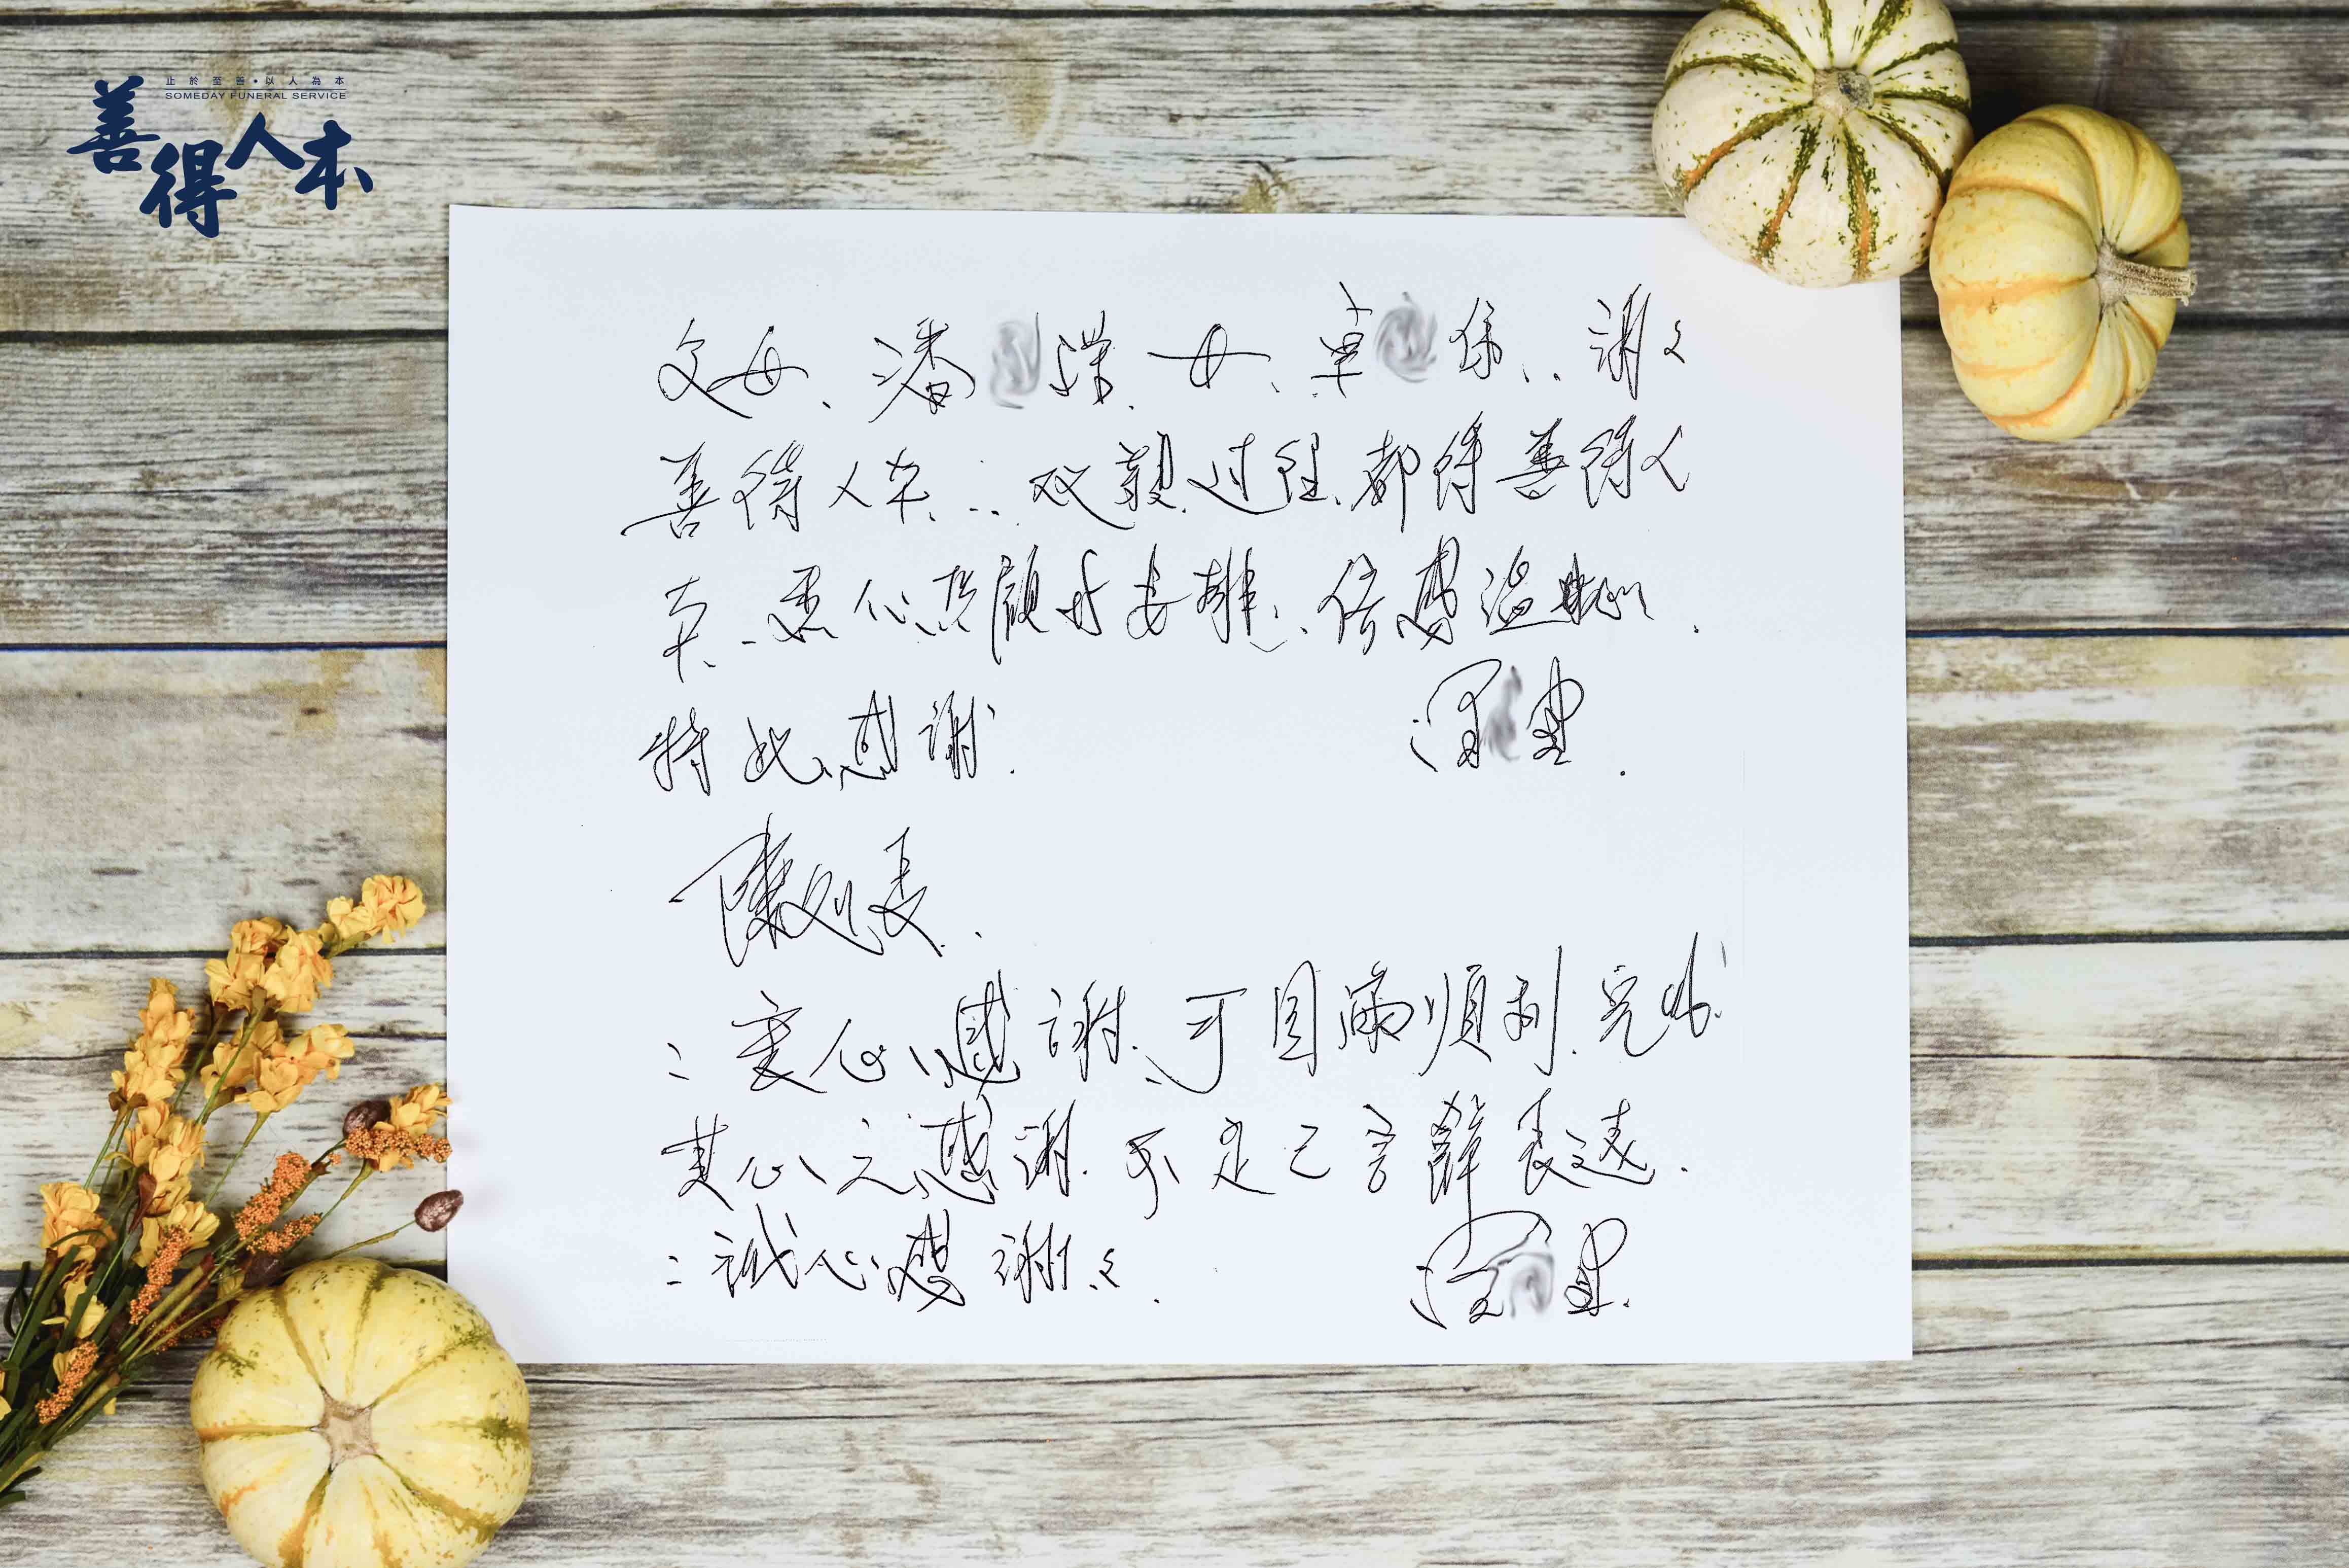 止於至善•以人為本
SOMEDAY FUNERAL SERVICE
善得人本
父母、潘 洋 女、卓 係.. 謝々
善得人本... 双親过程都得善得人
本、悉心照顧与安排、倍感溫
特此感謝.
潘
陳列表.
衷心感謝、可圓滿順利完成.
其心之感謝.不足已言辭表達.
:誠心感謝々.
潘